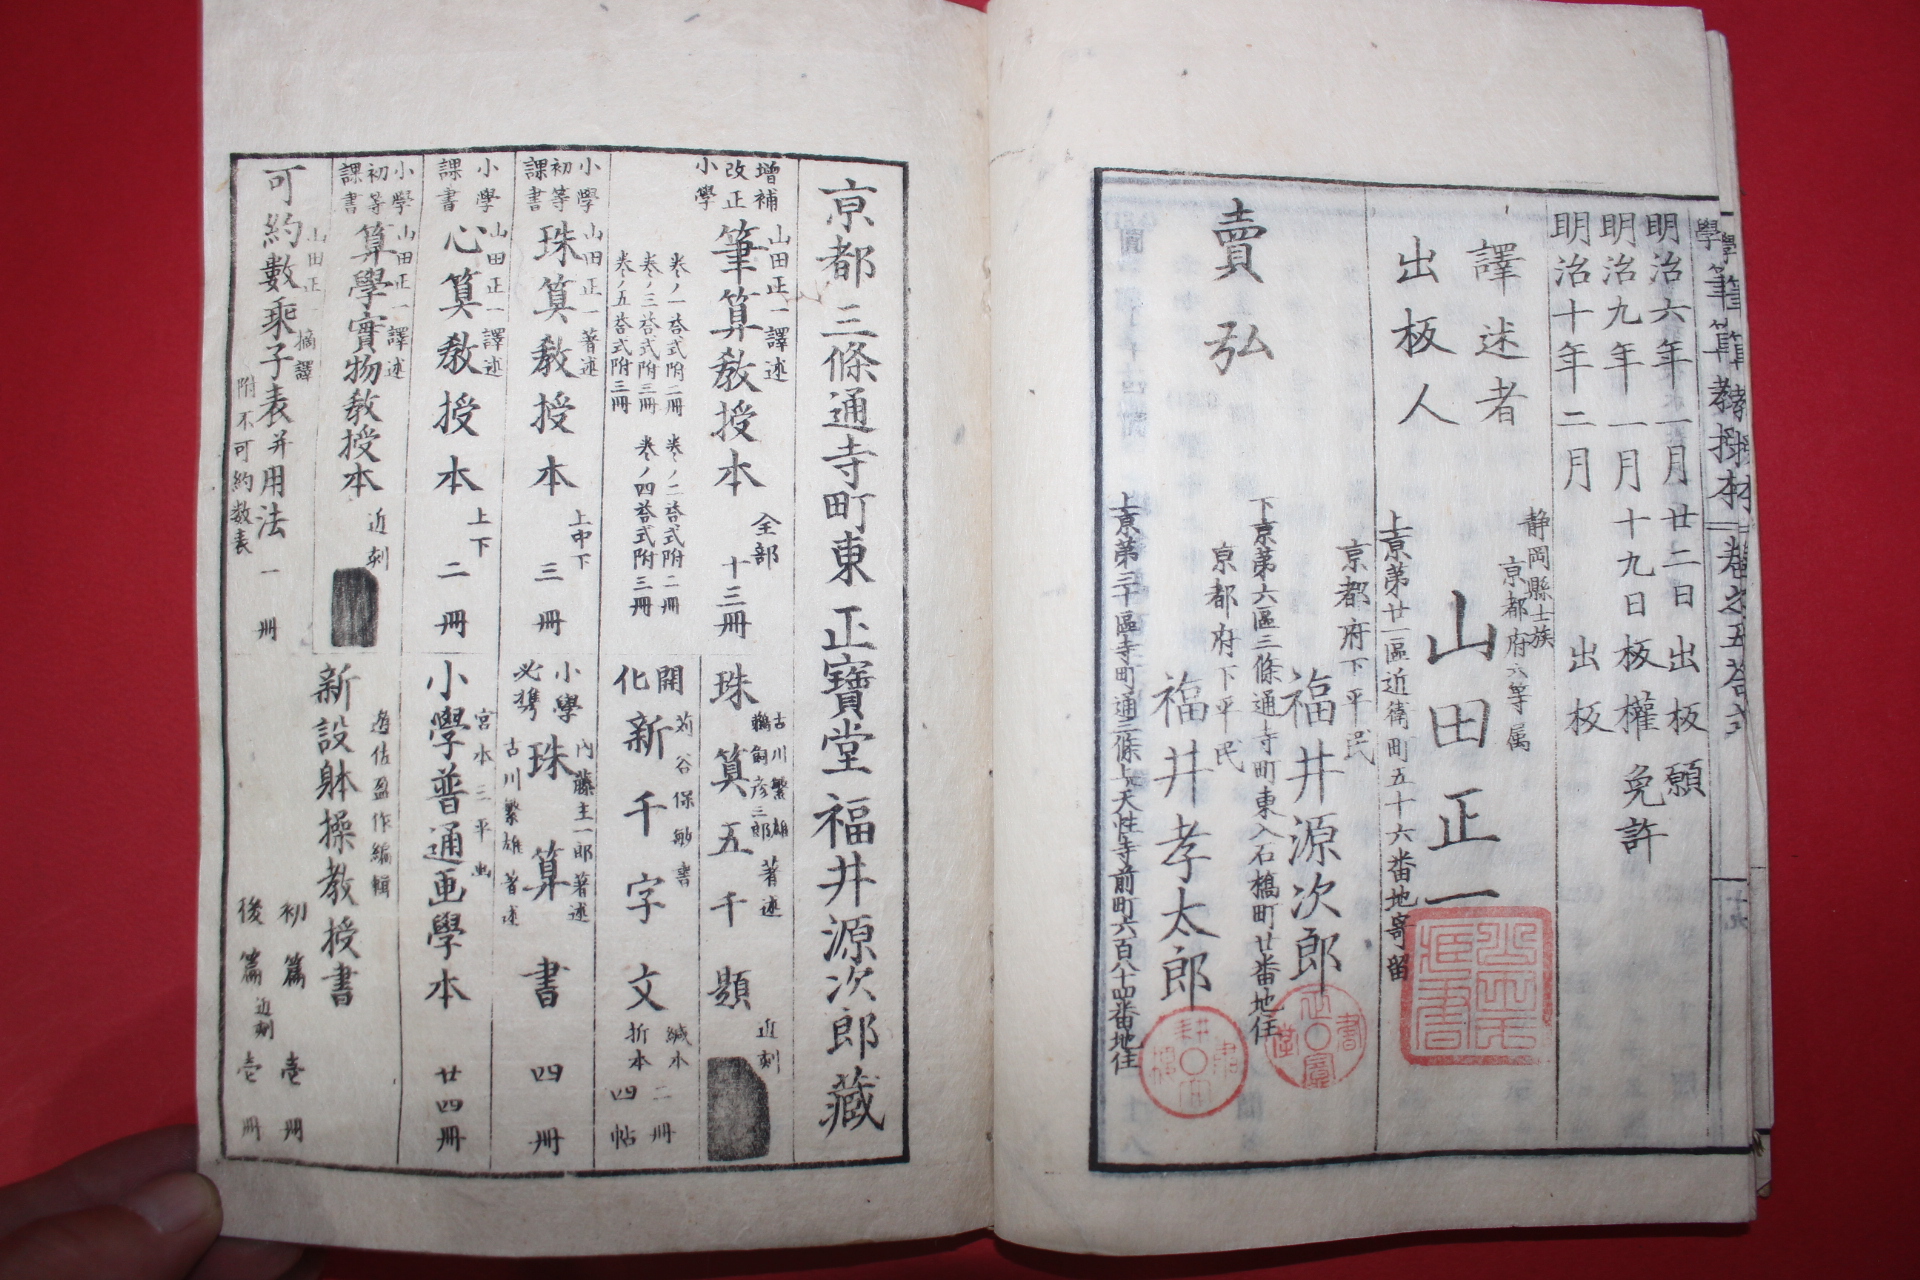 明治六年一月廿二日出板願
明治九年一月十九日板權免許
明治十年二月出板
譯述者
靜岡縣士族
京都府六等属
山田正一
上京第廿一區近衛町五十六番地寄留
出板人
京都府下平民
福井源次郎
下京第六區三條通寺町東入石橋町廿番地住
賣弘
京都府下平民
福井孝太郎
上京第三十區寺町通三條上ル天性寺前町六百八十四番地住
京都三條通寺町東 正寶堂 福井源次郎藏
增補
改正
小學
山田正一譯述
筆算教授本 全部十三冊
卷ノ一荅式附二冊 卷ノ二荅式附二冊
卷ノ三荅式附三冊 卷ノ四荅式附三冊
卷ノ五荅式附三冊
古川繁雄
鵜飼彦三郎 著述
珠算五千題 近刻
開化新千字文
苅谷保敏書
綴本二冊
折本四帖
小學
初等
課書
山田正一著述
珠算教授本 上中下 三冊
小學
必携
內藤主一郎著述
古川繁雄著述
珠算書 四冊
小學
課書
山田正一譯述
心算教授本 上下 二冊
宮本三平画
小學普通画學本 廿四冊
小學
初等
課書
山田正一譯述
算學實物教授本 近刻
遊佐盈作編輯
新設躰操教授書
初篇 壱冊
後篇 近刻 壱冊
山田正一摘譯
可約數乘子表并用法 一冊
附不可約数表